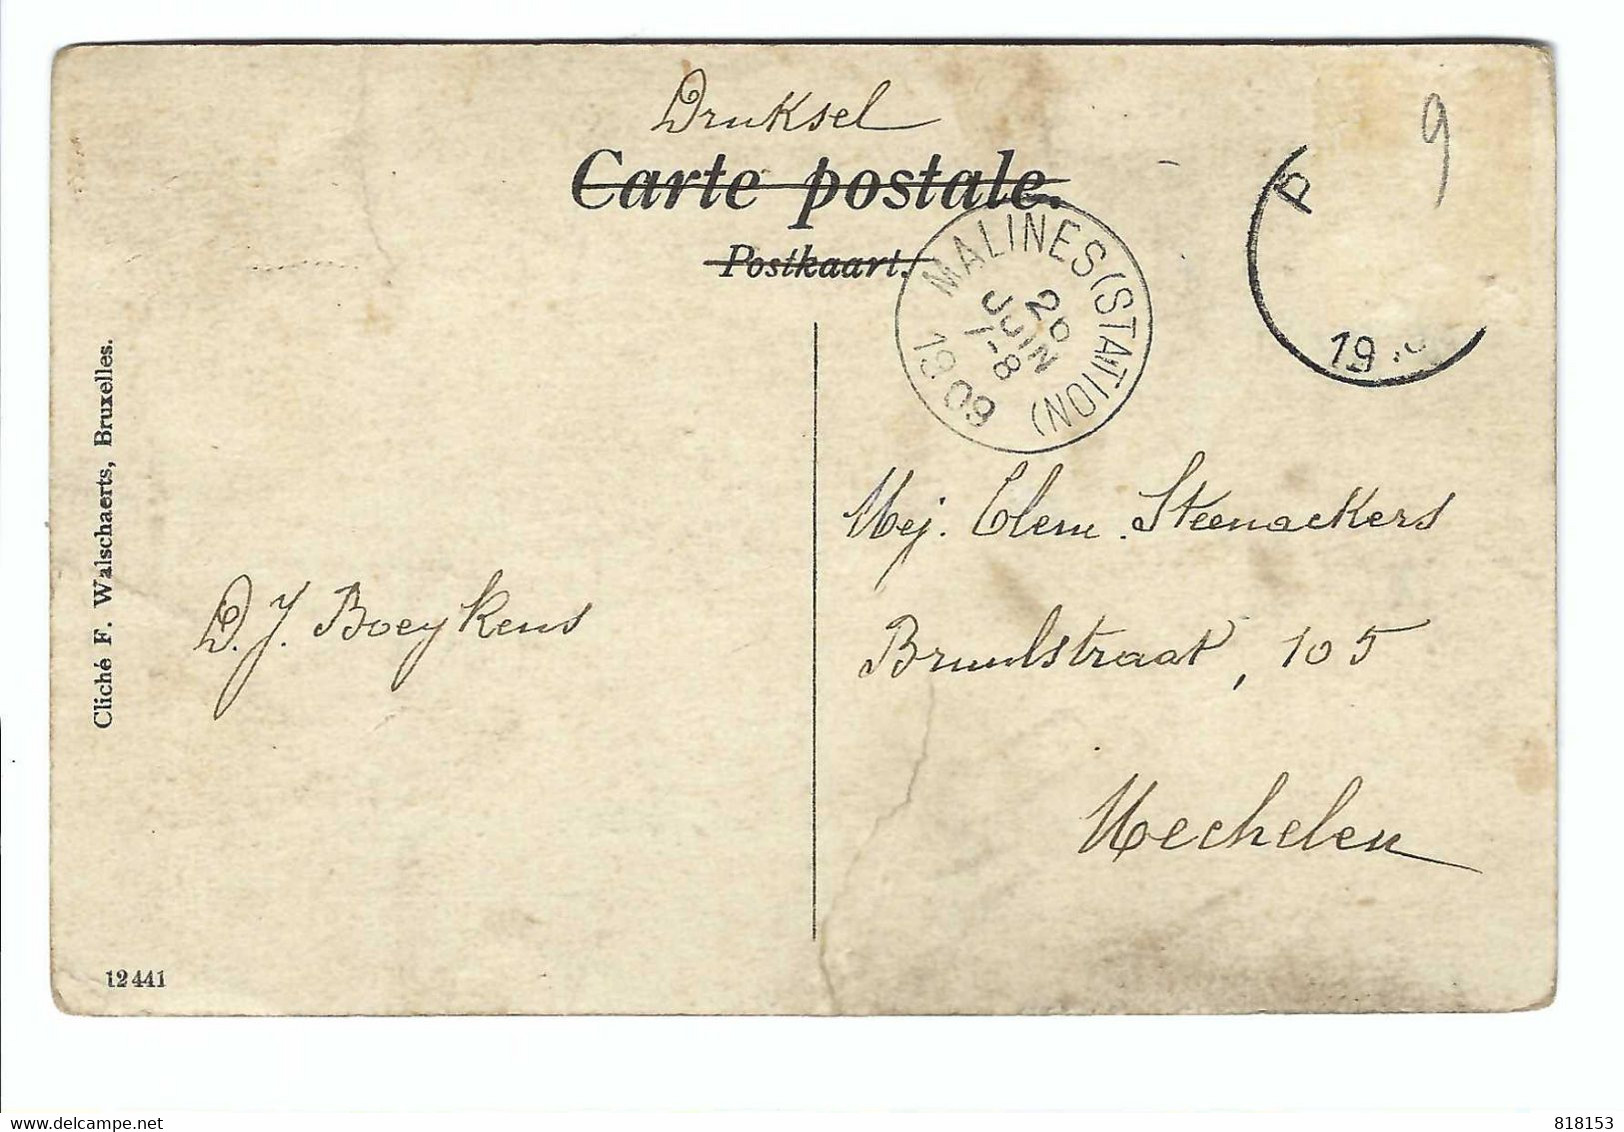 Druksel
Carte postale.
Postkaart.
MALINES (STATION)
20
JUIN
7-8
1908
P
19
9
Mej. Clem. Steenackers
Bruulstraat, 105
Mechelen
D. J. Boeykens
Cliché F. Walschaerts, Bruxelles.
12441
www.delcampe.net
818153